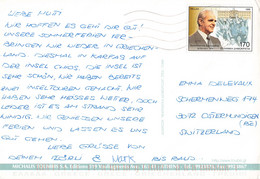 LIEBE HOSI
WIR HOFFEN ES GEHT DIR GUT!
UNSERE SOMMERFERIEN VER-
BRINGEN WIR WIEDER IN GRIECHEN-
LAND. DIESMAL IN KARFAS AUF
DER INSEL CHIOS. DIE INSEL IST
SEHR SCHÖN, WIR HABEN BEREITS
EINE INSELTOUREN GEMACHT. WIR
HABEN SEHR HEISSES WETTER, DOCH
LEIDER IST ES AM STRAND SEHR
WINDIG. WIR GENIESSEN UNSERE
FERIEN UND LASSEN ES UNS
GUT GEHEN.
LIEBE GRÜSSE VON
DENEN & MARK AUS
170
EMMA DELEVAUX
SCHERMENWEG 174
3072 OSTERMUNDIGEN
(BE)
SWITZERLAND
MICHAEL TOUBIS S.A.